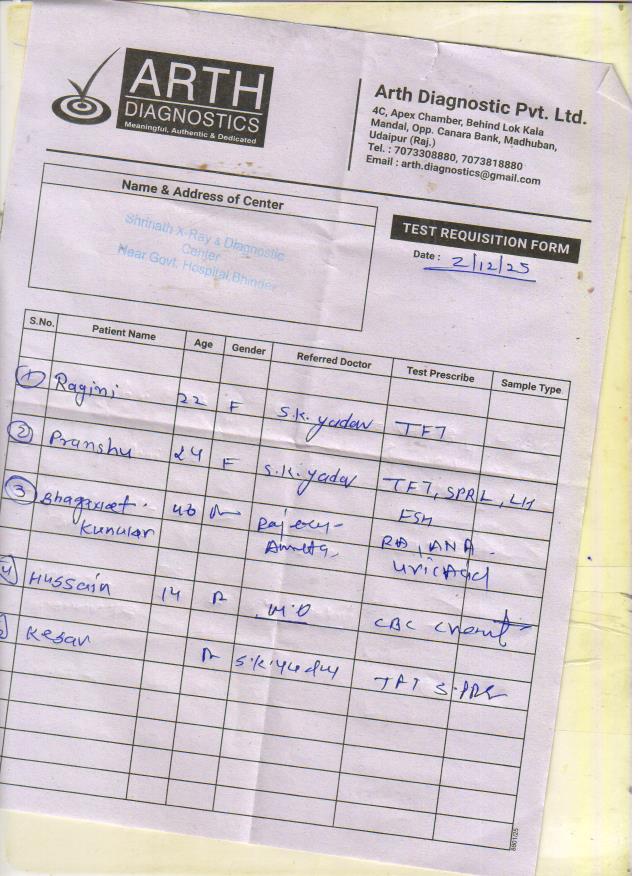 ARTH
DIAGNOSTICS
Meaningful, Authentic & Dedicated
Arth Diagnostic Pvt. Ltd.
4C, Apex Chamber, Behind Lok Kala
Mandal, Opp. Canara Bank, Madhuban,
Udaipur (Raj.)
Tel. : 7073308880, 7073818880
Email : arth.diagnostics@gmail.com
Name & Address of Center
Shrinath X-Ray & Diagnostic
Center
Near Govt. Hospital, Bhinder
TEST REQUISITION FORM
Date : 2/12/25
S.No. Patient Name Age Gender Referred Doctor Test Prescribe Sample Type
1 Ragini 22 F S.K. yadav TFT
2 Pranshu 24 F S.K. yadav TFT, SPRL, LH
FSH
3 40
RA, ANA
Uric Acid
4 Hussain 14 M.D CBC
Kesar S.K. yadav TFT
8801/25